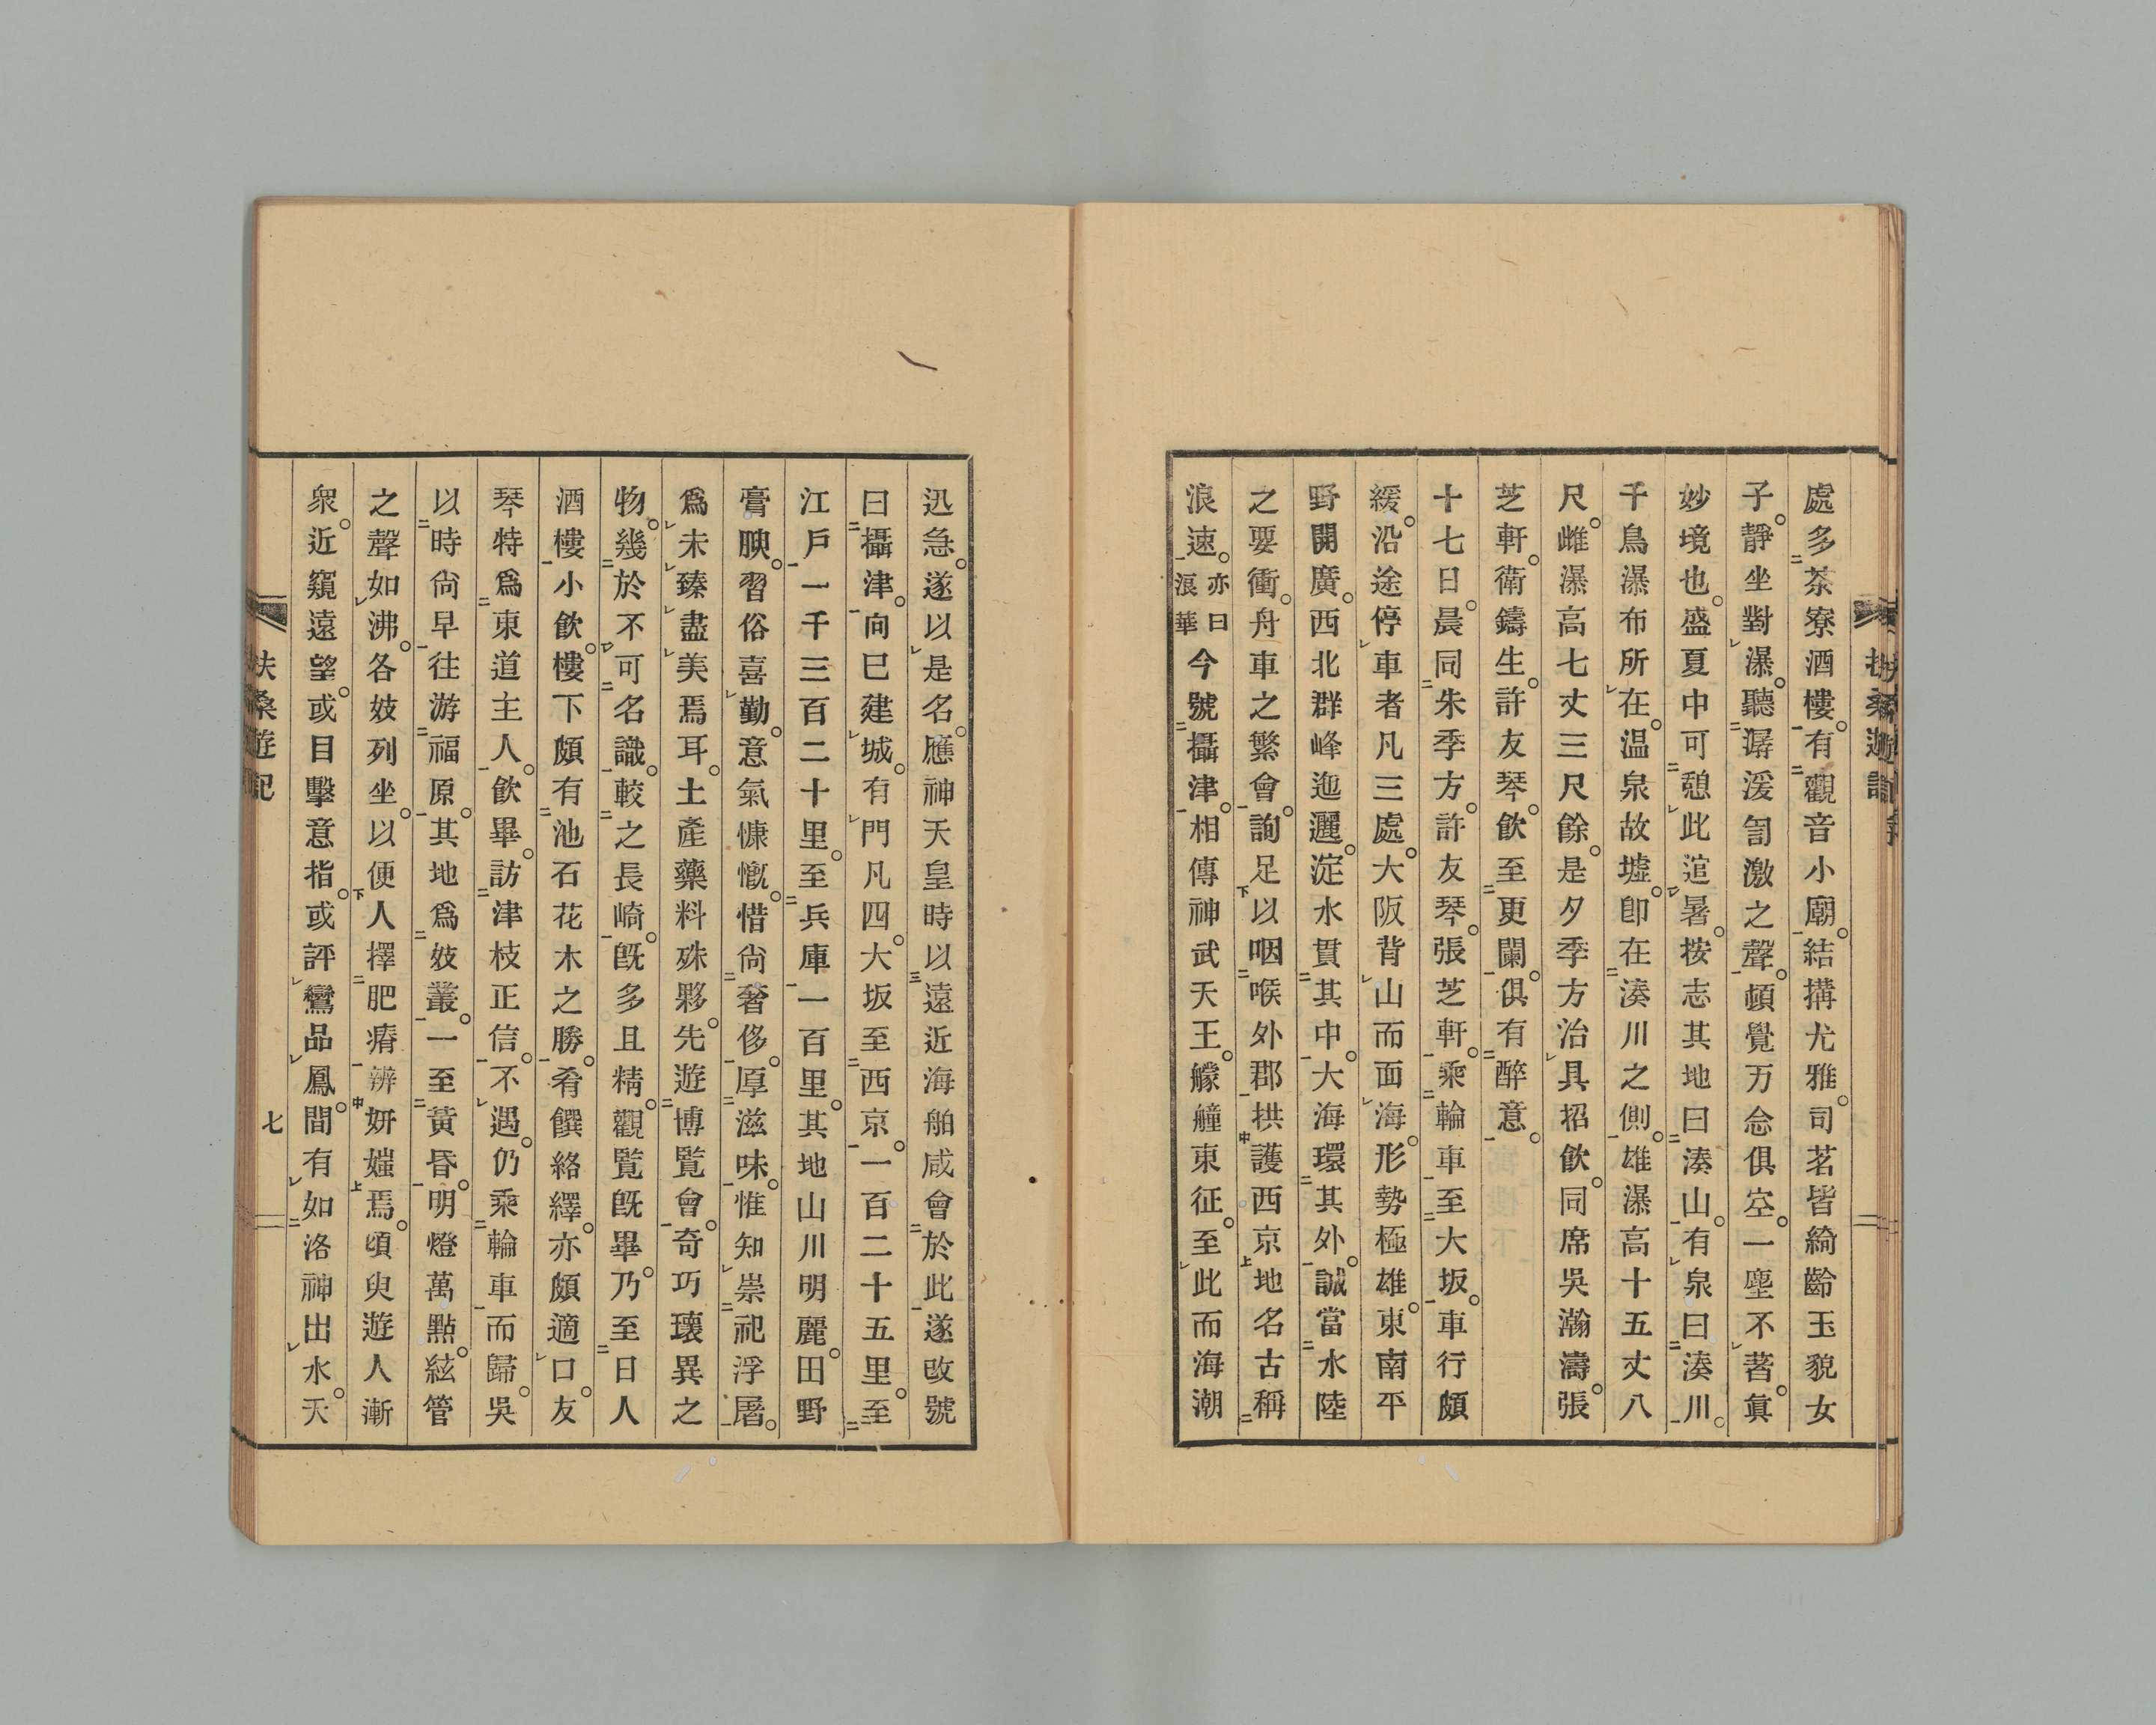 處多茶寮酒樓。有觀音小廟。結搆尤雅。司茗皆綺齡玉貌女
子。靜坐對瀑。聽潺湲訇激之聲。頓覺万念俱空。一塵不著。眞
妙境也。盛夏中可憩此逭暑。按志其地曰湊山。有泉曰湊川。
千鳥瀑布所在。温泉故墟。卽在湊川之側。雄瀑高十五丈八
尺。雌瀑高七丈三尺餘。是夕季方治具招飮。同席吳瀚濤。張
芝軒。衛鑄生。許友琴。飮至更闌。俱有醉意。
十七日。晨同朱季方。許友琴。張芝軒。乘輪車至大坂。車行頗
緩。沿途停車者凡三處。大阪背山而面海。形勢極雄。東南平
野開廣。西北群峰迤邐。淀水貫其中。大海環其外。誠當水陸
之要衝。舟車之繁會。詢足以咽喉外郡拱護西京。地名古稱
浪速。亦曰浪華今號攝津。相傳神武天王。艨艟東征。至此而海潮
迅急。遂以是名。應神天皇時以遠近海舶咸會於此。遂改號
曰攝津。向已建城。有門凡四。大坂至西京。一百二十五里。至
江戶一千三百二十里。至兵庫一百里。其地山川明麗。田野
膏腴。習俗喜勤。意氣慷慨。惜尙奢侈。厚滋味。惟知崇祀浮屠。
爲未臻盡美焉耳。土產藥料殊夥。先遊博覧會。奇巧瓌異之
物。幾於不可名識。較之長崎。旣多且精。觀覧旣畢。乃至日人
酒樓小飮。樓下頗有池石花木之勝。肴饌絡繹。亦頗適口。友
琴特爲東道主人。飮畢。訪津枝正信。不遇。仍乘輪車而歸。吳
以時尙早往游福原。其地爲妓叢。一至黃昏。明燈萬點。絃管
之聲如沸。各妓列坐。以便人擇肥瘠辨妍媸焉。頃臾遊人漸
衆。近窺遠望。或目擊意指。或評鸞品鳳。間有如洛神出水。天
扶桑遊記
七